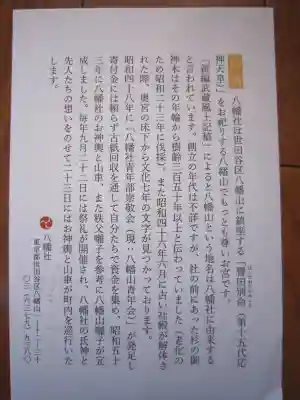 八幡社は世田谷区八幡山に鎮座する「誉田別命（第十五代応
神天皇）」をお祀りする八幡山でもっとも尊いお宮です。
「新編武蔵風土記稿」によると八幡山という地名は八幡社に由来する
と言われています。創立の年代は不詳ですが、社の前にあった杉の御
神木はその年輪から樹齢三百五十年以上と伝わっていました（老化の
ため昭和二十三年に伐採）。また昭和四十六年六月に古い社殿が解体さ
れた際、奥宮の床下から文化七年の文字が見つかっております。
昭和四十八年に「八幡社青年部崇敬会（現：八幡山青年会）」が発足し
寄付金には頼らず古紙回収を通して自分たちで資金を集め、昭和五十
三年に八幡社のお神輿と山車、また秩父囃子を参考に八幡山囃子が完
成しました。毎年九月二十二日には祭礼が開催され、八幡社の氏神と
先人たちの想いをのせて二十三日にはお神輿と山車が町内を巡行いた
します。
八幡社
東京都世田谷区八幡山